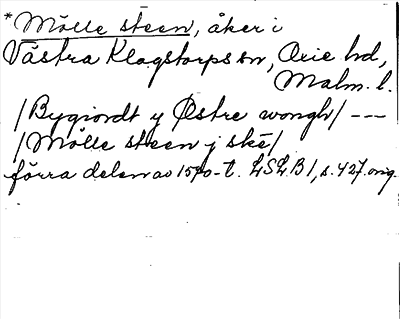 * Mölle steen, åker i
Västra Klagstorps sn, Oxie hd,
Malm. l.
/Bygiordt y Østre wongh/ ---
/Mölle steen j ske/
förra delen av 1570-t. LSLB1, s. 427. orig.